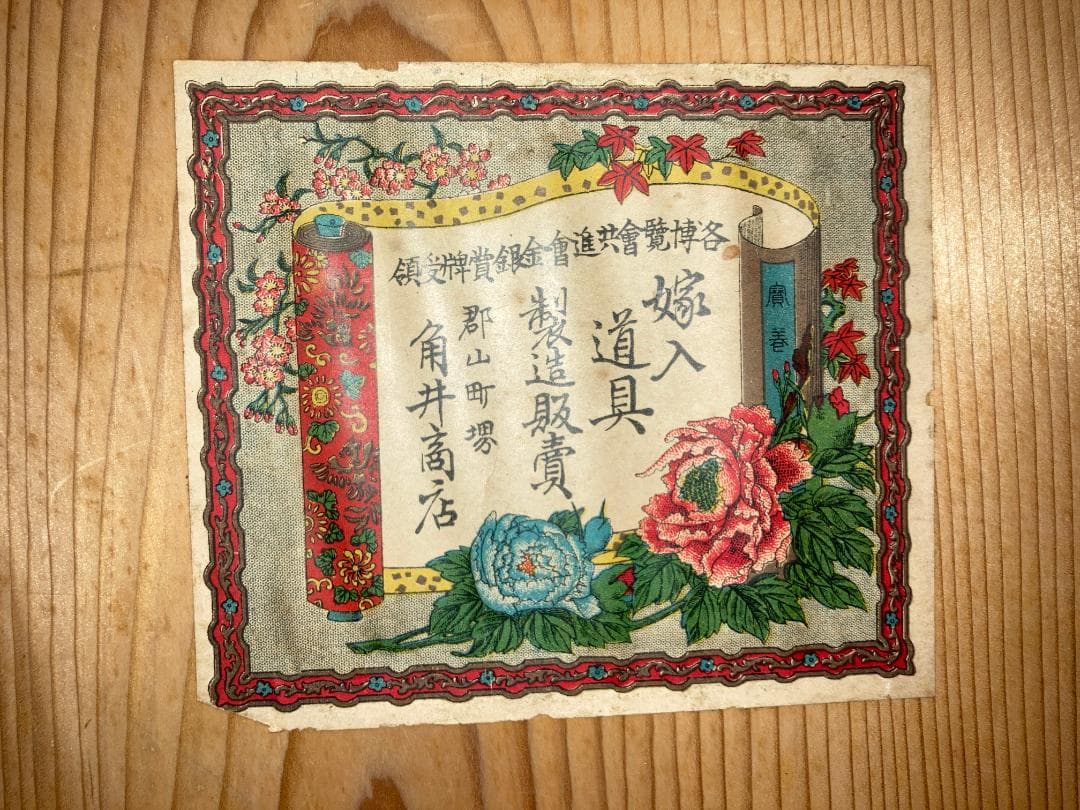 各博覧會共進會金銀賞牌受領
嫁入
道具
製造販賣
郡山町堺
角井商店
寳巻